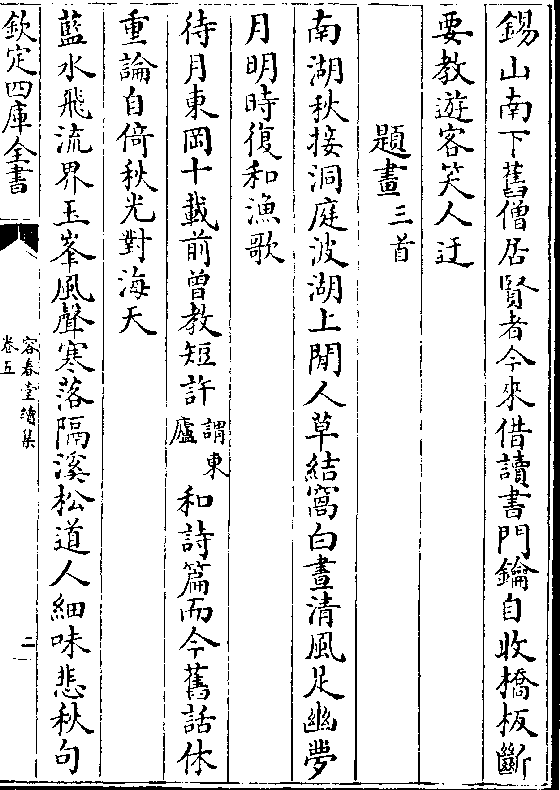 錫山南下舊僧居賢者今來借讀書門鑰自收橋板斷
要教遊客笑人迂
題畫三首
南湖秋接洞庭波湖上閒人草結窩白晝清風足幽夢
月明時復和漁歌
待月東岡十載前曾教短許謂東廬和詩篇而今舊話休
重論自倚秋光對海天
藍水飛流界玉峯風聲寒落隔溪松道人細味悲秋句
欽定四庫全書
容春堂續集
卷五
二